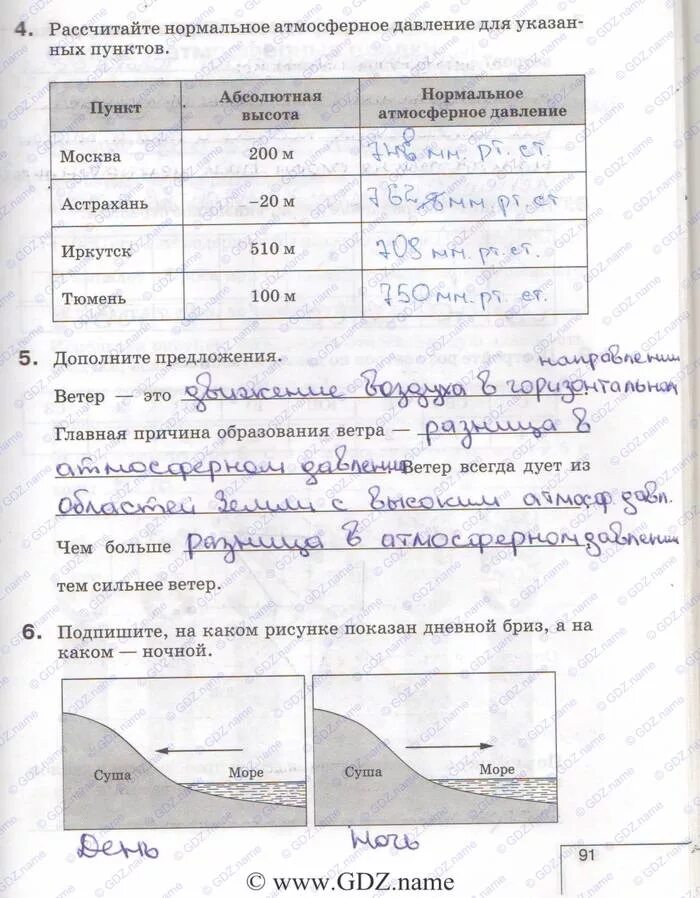 4. Рассчитайте нормальное атмосферное давление для указан-
ных пунктов.
Пункт Абсолютная высота Нормальное атмосферное давление
Москва 200 м мм. рт. ст.
Астрахань –20 м мм. рт. ст
Иркутск 510 м 709 мм. рт. ст.
Тюмень 100 м 750 мм. рт. ст.
5. Дополните предложения.
направлении
Ветер — это движение воздуха в горизонтальном
Главная причина образования ветра — разница в
атмосферном давлении Ветер всегда дует из
областей Земли с высоким атмосф давл.
Чем больше разница в атмосферном давлении
тем сильнее ветер.
6. Подпишите, на каком рисунке показан дневной бриз, а на
каком — ночной.
Суша Море Суша Море
День Ночь
91
© www.GDZ.name